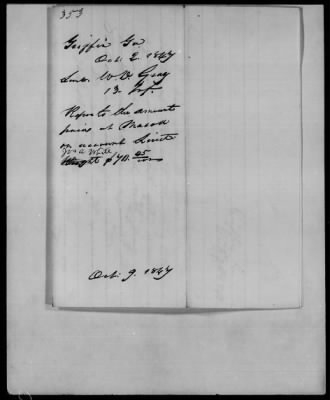 353
Griffin Ga
Oct. 2. 1847
Lieut. W. D. Gray
13. Inf.
Reports the amount
paid at Macon
on account Lieut
Wm A. White
Wright $70. 45/100
Oct. 9. 1847